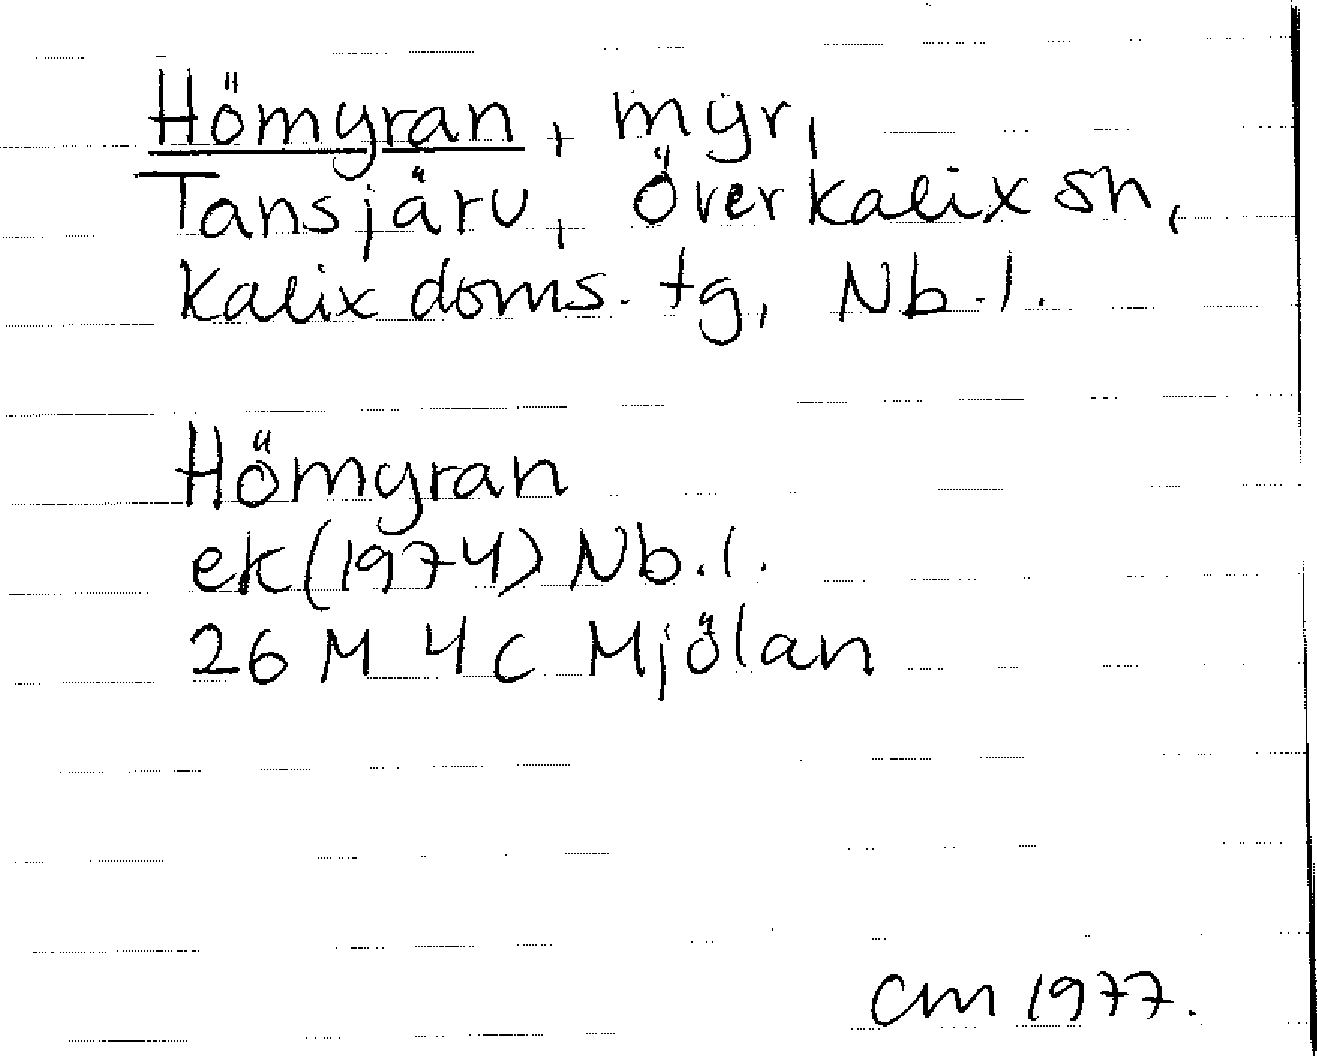 Hömyran, myr,
Tansjärv, Överkalix sn,
Kalix doms. tg, Nb.l.
Hömyran
ek (1974) Nb.l.
26 M 4c Mjölan
CM 1977.